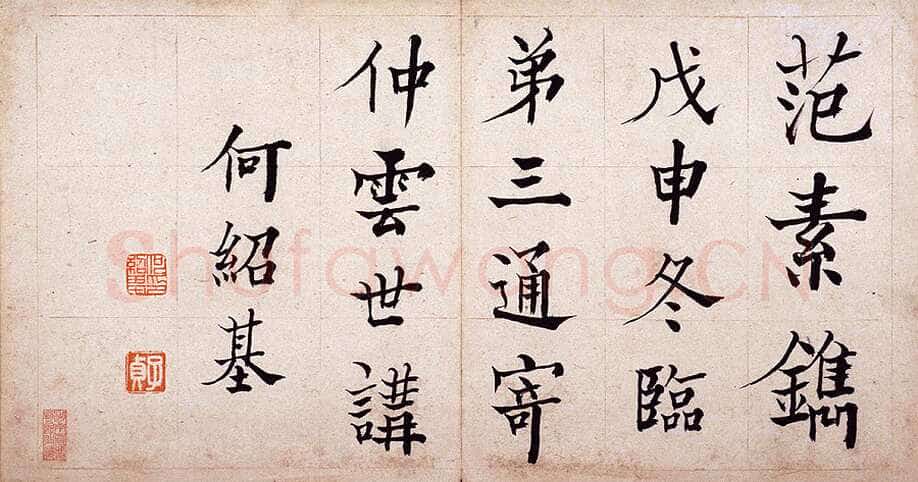 范素鐫
戊申冬臨
弟三通寄
仲雲世講
何紹基
子貞
Shufawang.CN